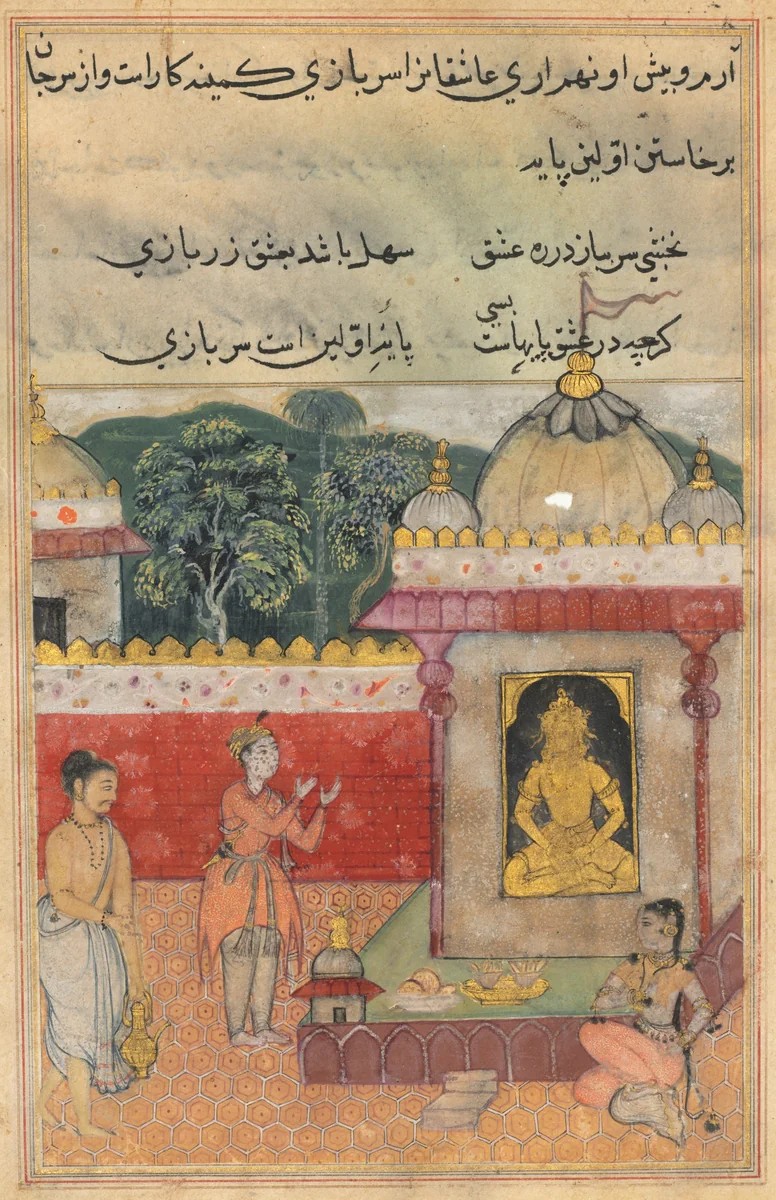 آرم و پیش او نهم اری عاشقانرا سربازی کمینه کار است و از سر جان
برخاستن اوّلین پایه
نخشبی سر بباز در ره عشق سهل باشد بعشق زر بازی
گرچه در عشق پایهاست بسی پایۀ اوّلین است سر بازی